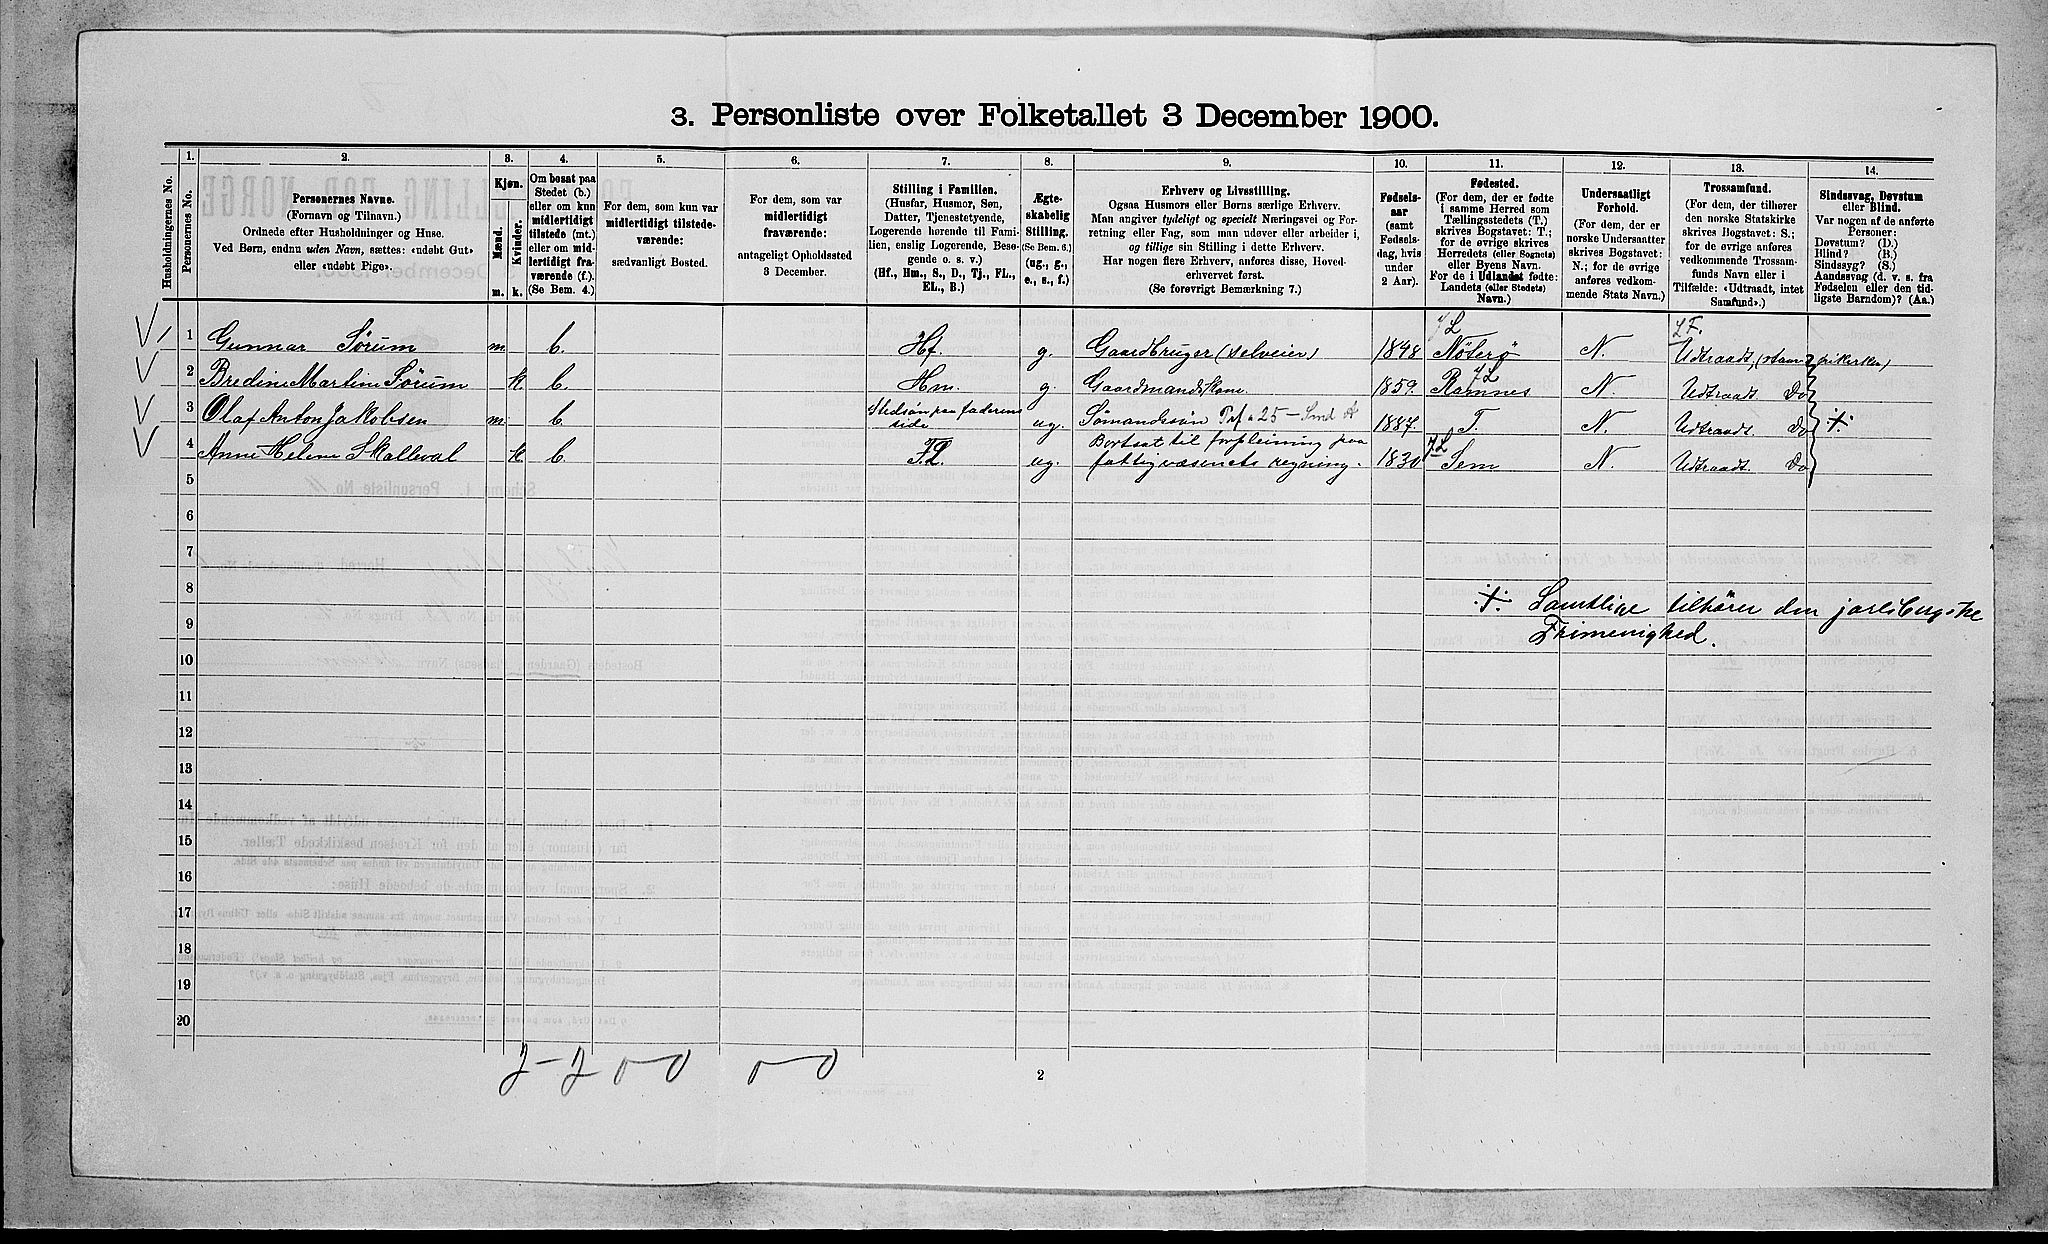 3. Personliste over Folketallet 3 December 1900.
1. 2. 3. 4. 5. 6. 7. 8. 9. 10. 11. 12. 13. 14.
Husholdningernes No.
Personernes No.
Personernes Navne.
(Fornavn og Tilnavn.)
Ordnede efter Husholdninger og Huse.
Ved Børn, endnu uden Navn, sættes: «udøbt Gut»
eller «udøbt Pige».
Kjøn.
Mænd. Kvinder.
m. k.
Om bosat paa
Stedet (b.)
eller om kun
midlertidigt
tilstede (mt.)
eller om mid-
lertidigt fra-
værende (f.).
(Se Bem. 4.)
For dem, som kun var
midlertidigt tilstede-
værende:
sædvanligt Bosted.
For dem, som var
midlertidigt
fraværende:
antageligt Opholdssted
3 December.
Stilling i Familien.
(Husfar, Husmor, Søn,
Datter, Tjenestetyende,
Logerende hørende til Fami-
lien, enslig Logerende, Besø-
gende o. s. v.)
(Hf., Hm., S., D., Tj., FL.,
EL., B.)
Ægte-
skabelig
Stilling.
(Se Bem. 6.)
(ug., g.,
e., s., f.)
Erhverv og Livsstilling.
Ogsaa Husmors eller Børns særlige Erhverv.
Man angiver tydeligt og specielt Næringsvei og For-
retning eller Fag, som man udøver eller arbeider i,
og tillige sin Stilling i dette Erhverv.
Har nogen flere Erhverv, anføres disse, Hoved-
erhvervet først.
(Se forøvrigt Bemærkning 7.)
Fødsels-
aar
(samt
Fødsels-
dag, hvis
under
2 Aar).
Fødested.
(For dem, der er fødte
i samme Herred som
Tællingsstedets (T.)
skrives Bogstavet: T.;
for de øvrige skrives
Herredets (eller Sognets)
eller Byens Navn.
For de i Udlandet fødte:
Landets (eller Stedets)
Navn.)
Undersaatligt
Forhold.
(For dem, der er
norske Undersaatter
skrives Bogstavet:
N.; for de øvrige
anføres vedkom-
mende Stats Navn.)
Trossamfund.
(For dem, der tilhører
den norske Statskirke
skrives Bogstavet: S.;
for de øvrige anføres
vedkommende Trossam-
funds Navn eller i
Tilfælde: «Udtraadt, intet
Samfund».)
Sindssvag, Døvstum
eller Blind.
Var nogen af de anførte
Personer:
Døvstum? (D.)
Blind? (B.)
Sindssyg? (S.)
Aandssvag (d. v. s. fra
Fødselen eller den tid-
ligste Barndom)? (Aa.)
1 Gunnar Sørum m. b. Hf. g. Gaardbruger (selveier) 1848 Nøterø N. Udtraadt, (statskirken)
2 Bredine Martine Sørum k. b. Hm. g. Gaardmandskone 1859. Ramnes N. Udtraadt. Do
3 Olaf Anton Jakobsen m. b. Stedsøn paa faderens
side ug. Sømandssøn 1887. T. N. Udtraadt. Do ·/·
4 Anne Helene Skalleval k. b. FL. ug. Bortsat til forpleining paa
fattigvæsenets regning. 1830 Sem N. Udtraadt. Do
5
6
7
8
·/· Samtlige tilhører den jarlsbergske
9
Frimenighed.
10
11
12
13
14
15
16
17
18
19
20
2 - 2 0 0 0 0
2